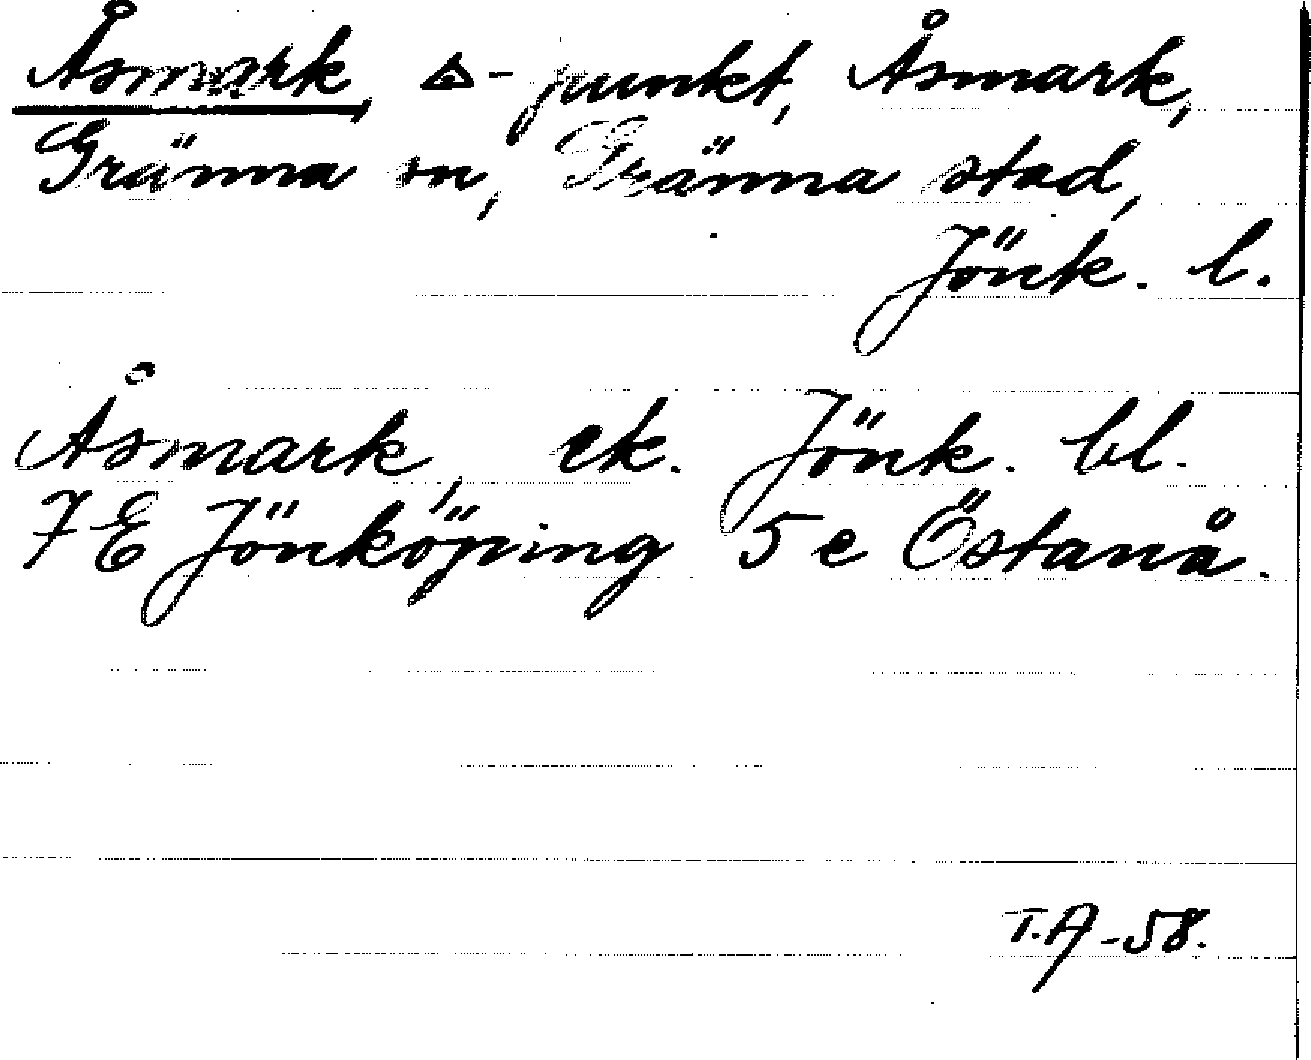 Åsmark, △-punkt, Åsmark,
Gränna sn, Gränna stad,
Jönk. l.
Åsmark, ek. Jönk. bl.
7 E Jönköping 5 e Östanå.
T.A -58.